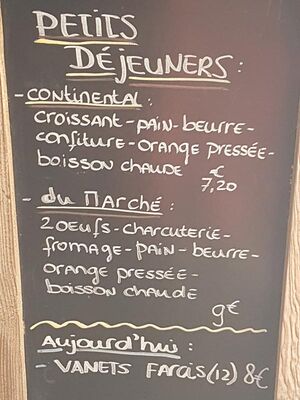 PETITS
DÉJEUNERS :
- CONTINENTAL :
CROISSANT - PAIN - BEURRE -
CONFITURE - ORANGE PRESSÉE -
BOISSON CHAUDE €
7,20
- DU MARCHÉ :
2 OEUFS - CHARCUTERIE -
FROMAGE - PAIN - BEURRE -
ORANGE PRESSÉE -
BOISSON CHAUDE
9€
AUJOURD'HUI :
- VANETS FARCIS (12) 8€